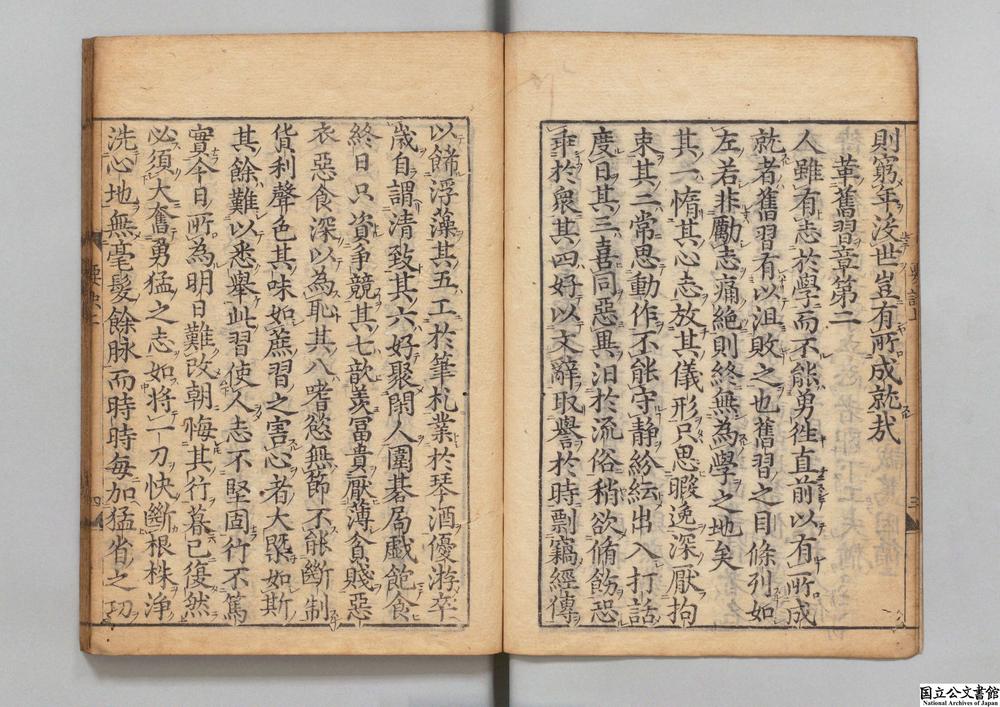 則窮年沒世豈有所成就哉
革舊習章第二
人雖有志於學而不能勇往直前以有所成
就者舊習有以沮敗之也舊習之目條列如
左若非勵志痛絕則終無為學之地矣
其一惰其心志放其儀形只思暇逸深厭拘
束其二常思動作不能守静紛紜出入打話
度日其三喜同惡異汨於流俗稍欲脩飭恐
乖於衆其四好以文辭取譽於時剽竊經傳
以餙浮藻其五工於筆札業於琴酒優游卒
歳自謂清致其六好聚閑人圍碁局戱飽食
終日只資爭競其七歆羡冨貴厭薄貧賤惡
衣惡食深以為恥其八嗜慾無節不能斷制
貨利聲色其味如蔗習之害心者大槩如斯
其餘難以悉舉此習使人志不堅固行不篤
實今日所為明日難改朝悔其行暮已復然
必須大奮勇猛之志如將一刀快斷根株净
洗心地無毫髮餘脉而時時每加猛省之功
國立公文書館
National Archives of Japan